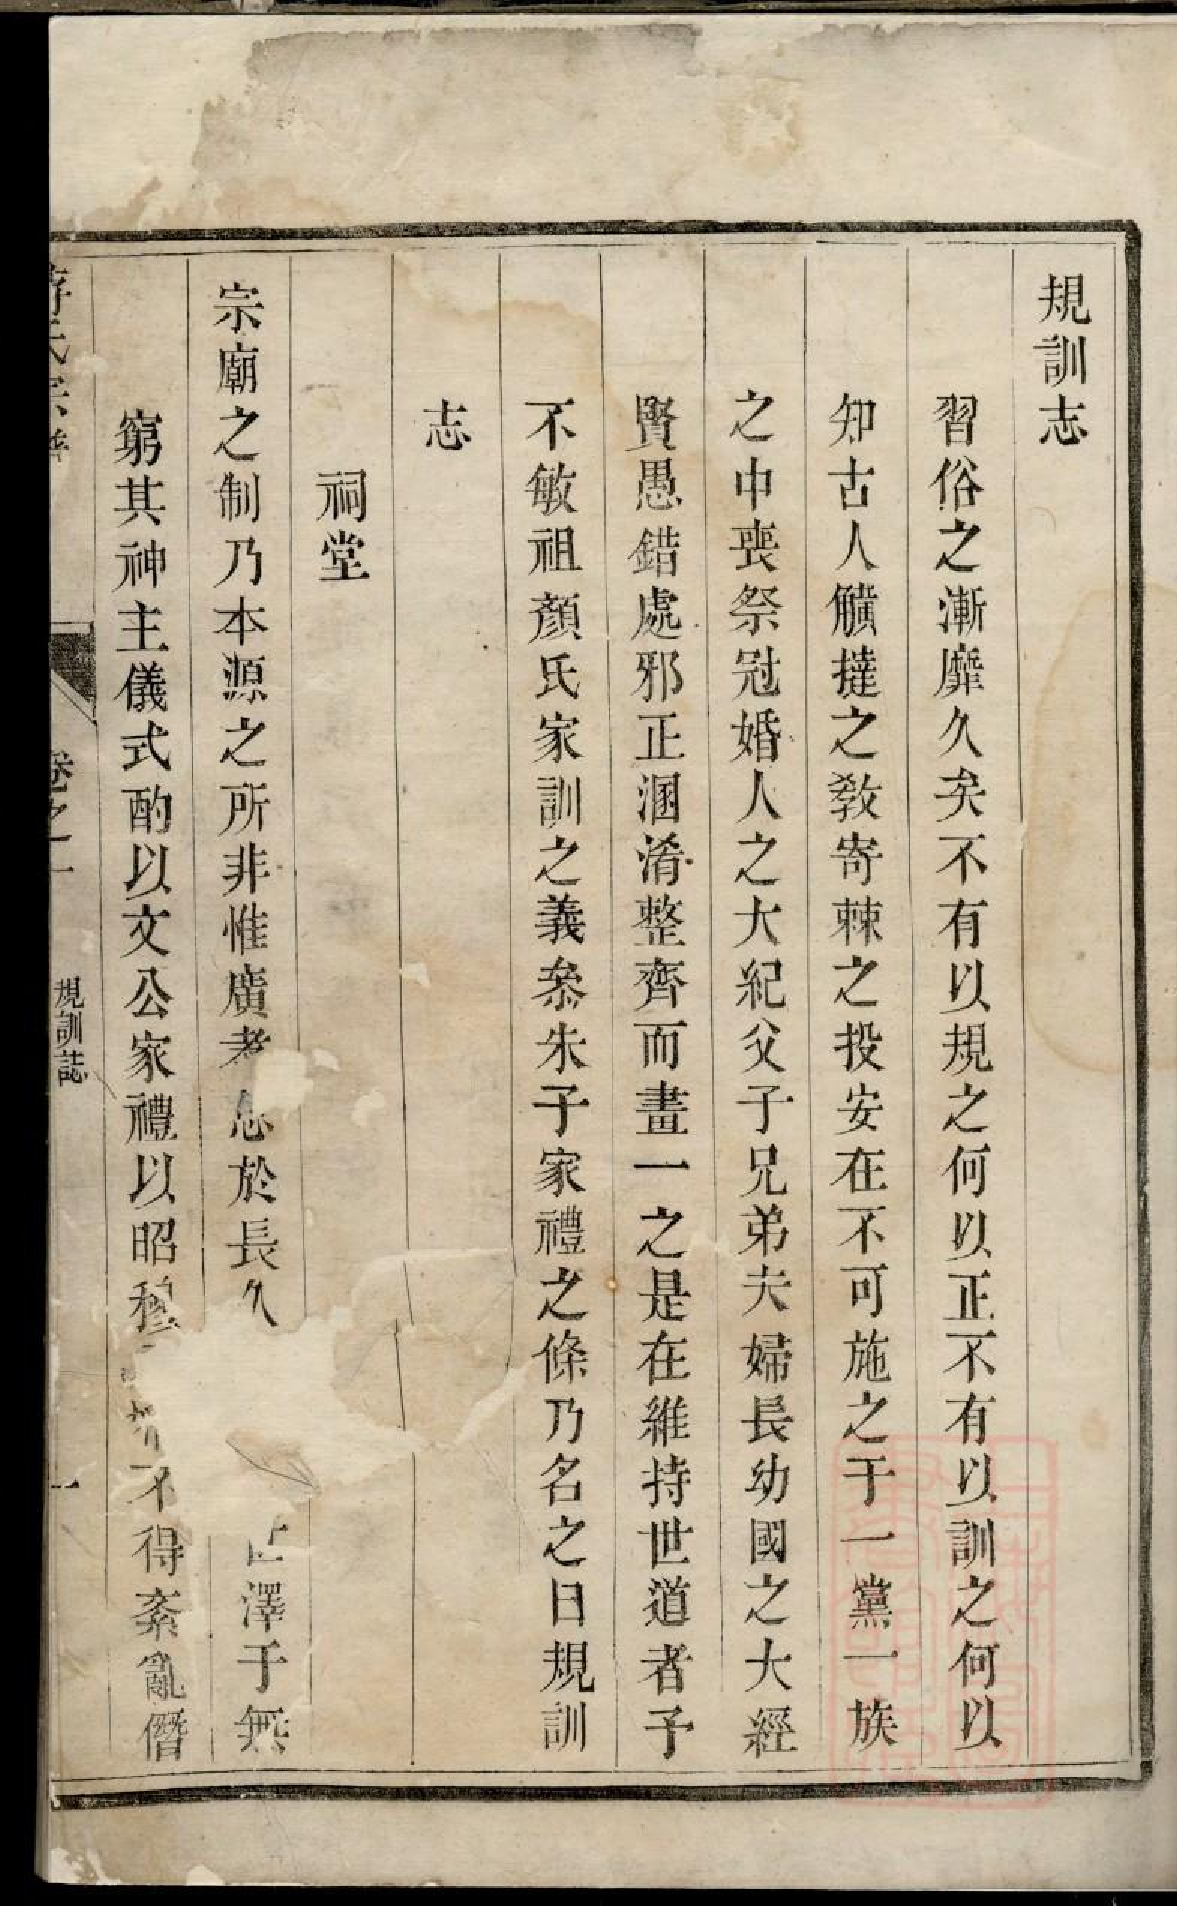 規訓志
習俗之漸靡久矣不有以規之何以正不有以訓之何以
知古人觵撻之敎寄棘之投安在不可施之于一黨一族
之中喪祭冠婚人之大紀父子兄弟夫婦長幼國之大經
賢愚錯處邪正溷淆整齊而畫一之是在維持世道者予
不敏祖顏氏家訓之義叅朱子家禮之條乃名之曰規訓
志
祠堂
宗廟之制乃本源之所非惟廣孝思於長久澤于無
窮其神主儀式酌以文公家禮以昭穆不得紊亂僭
氏宗譜
卷之一
規訓誌
一